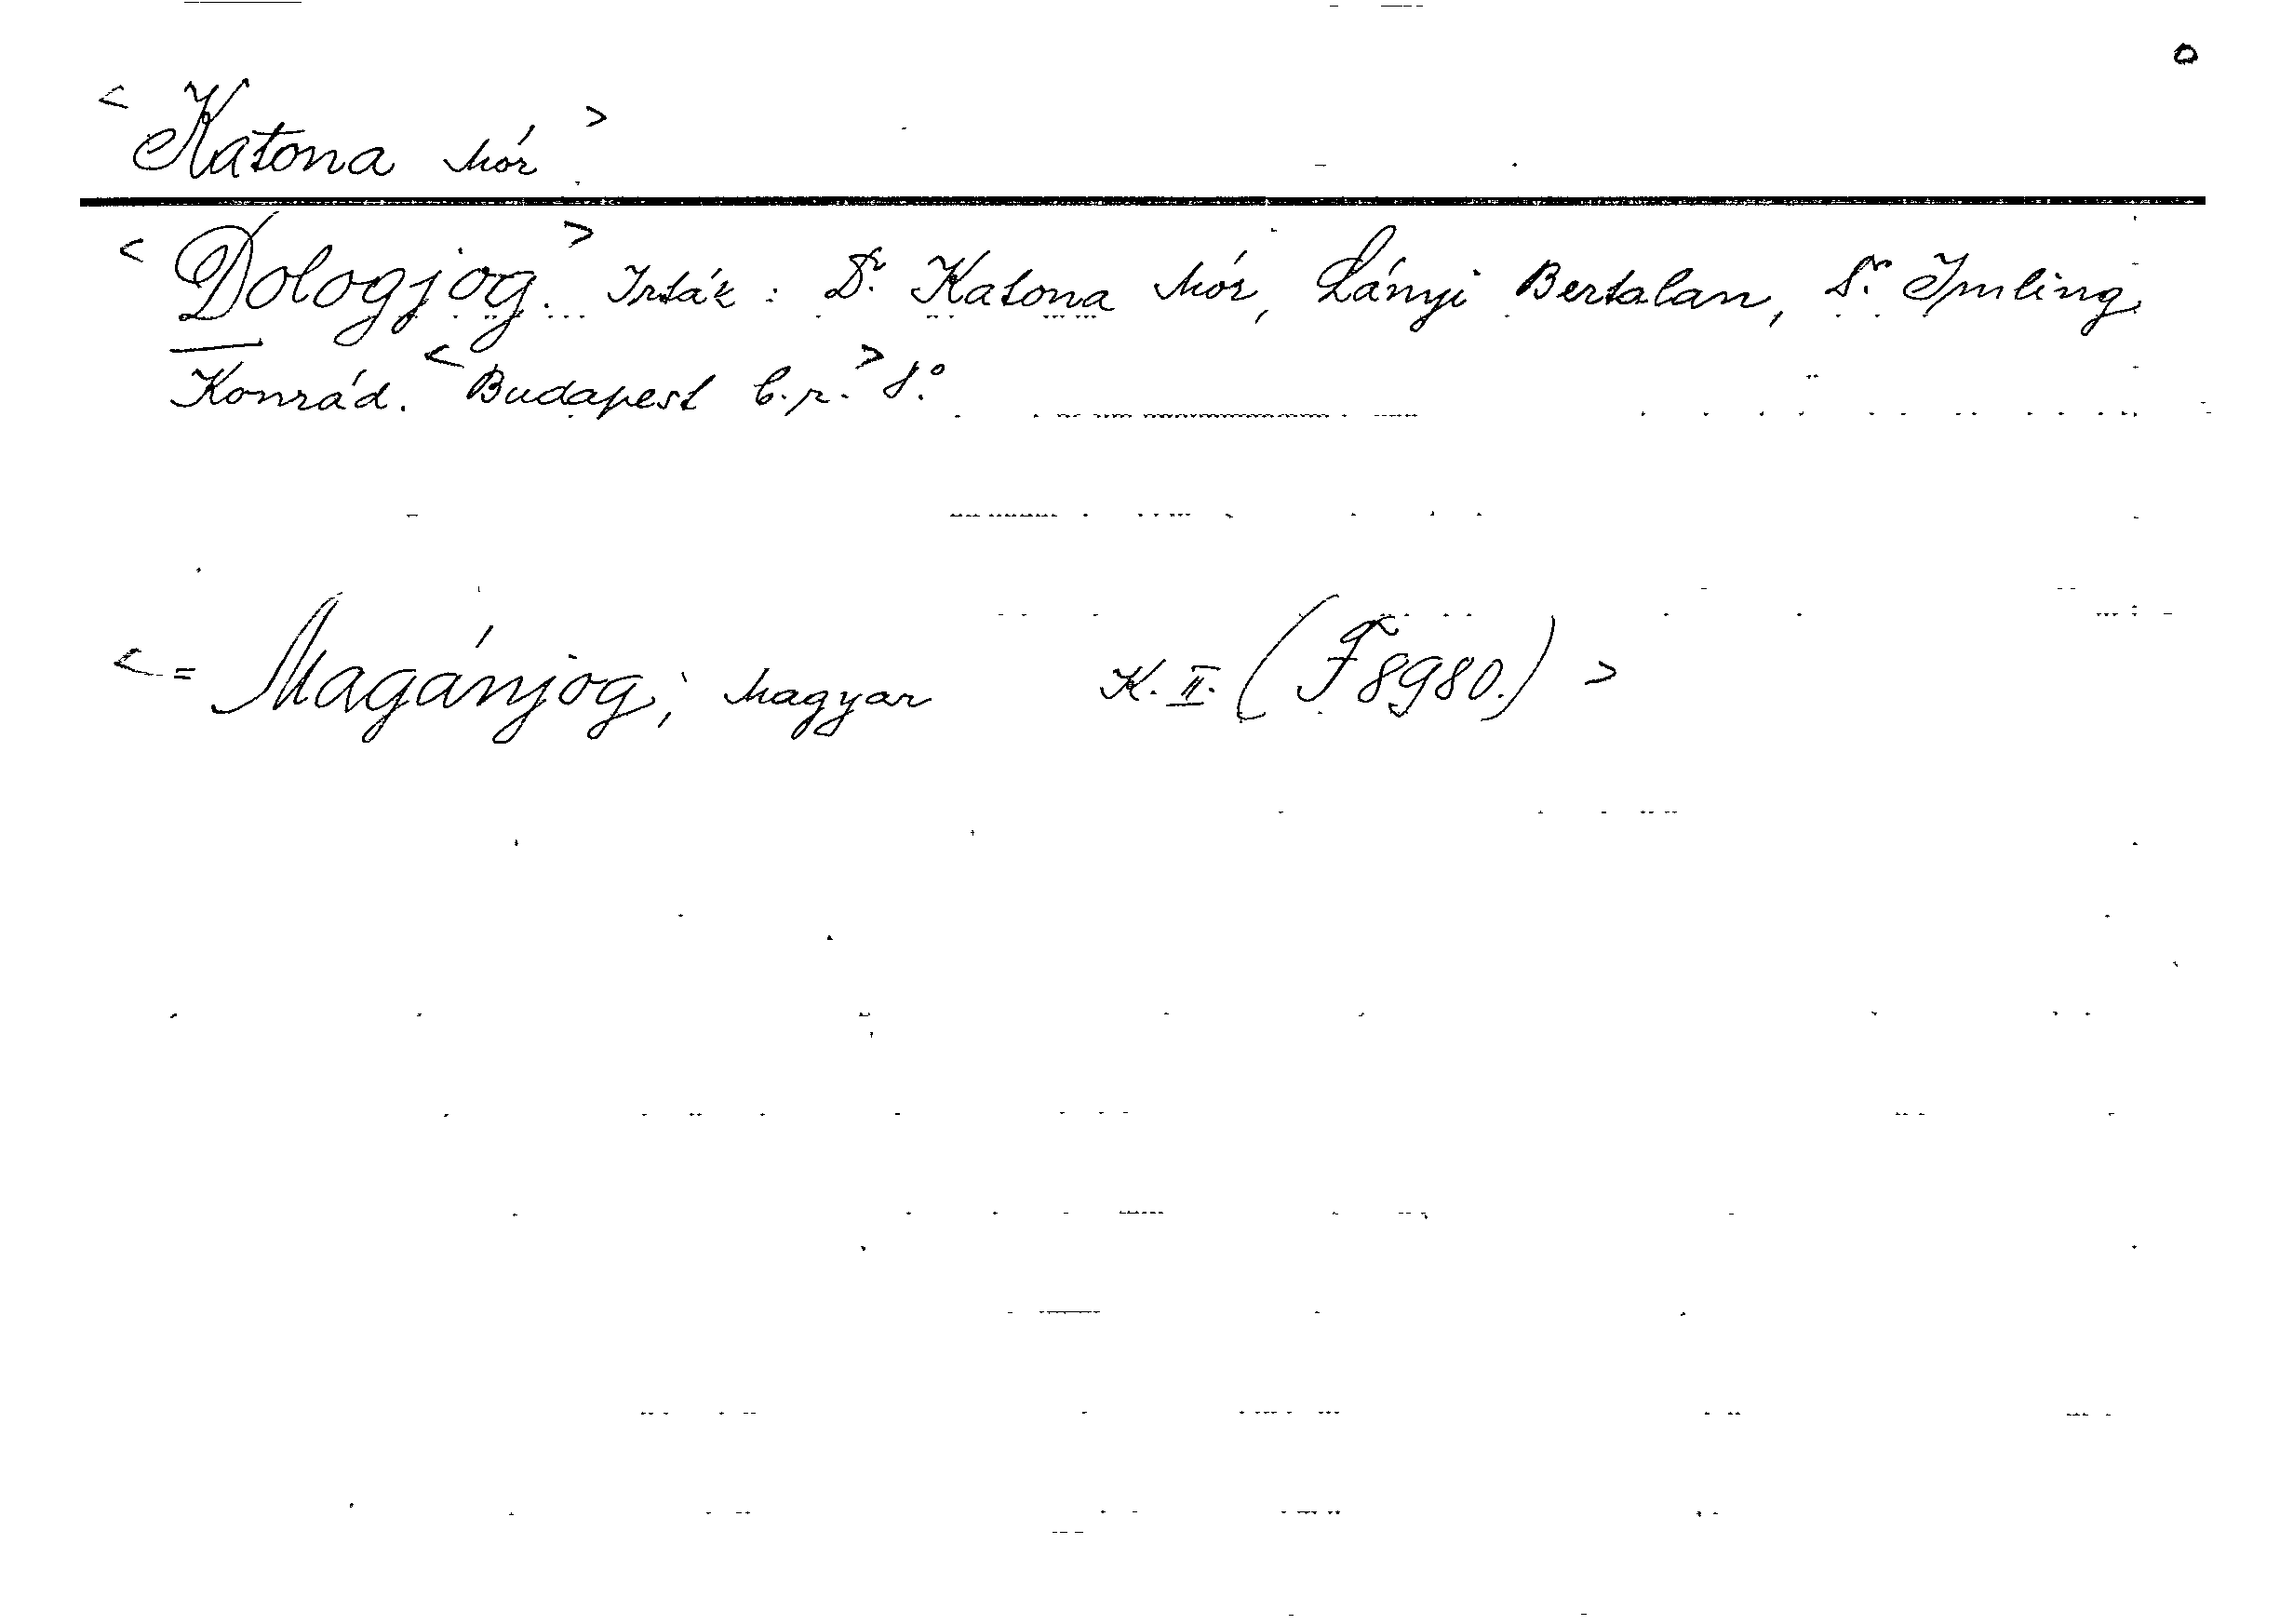 o
< Katona Mór >
< Dologjog. > Irták : Dr. Katona Mór, Lányi Bertalan, Dr. Imling
Konrád. < Budapest é.n. > 8°
< = Magánjog, magyar K. II. (F 8980.) >